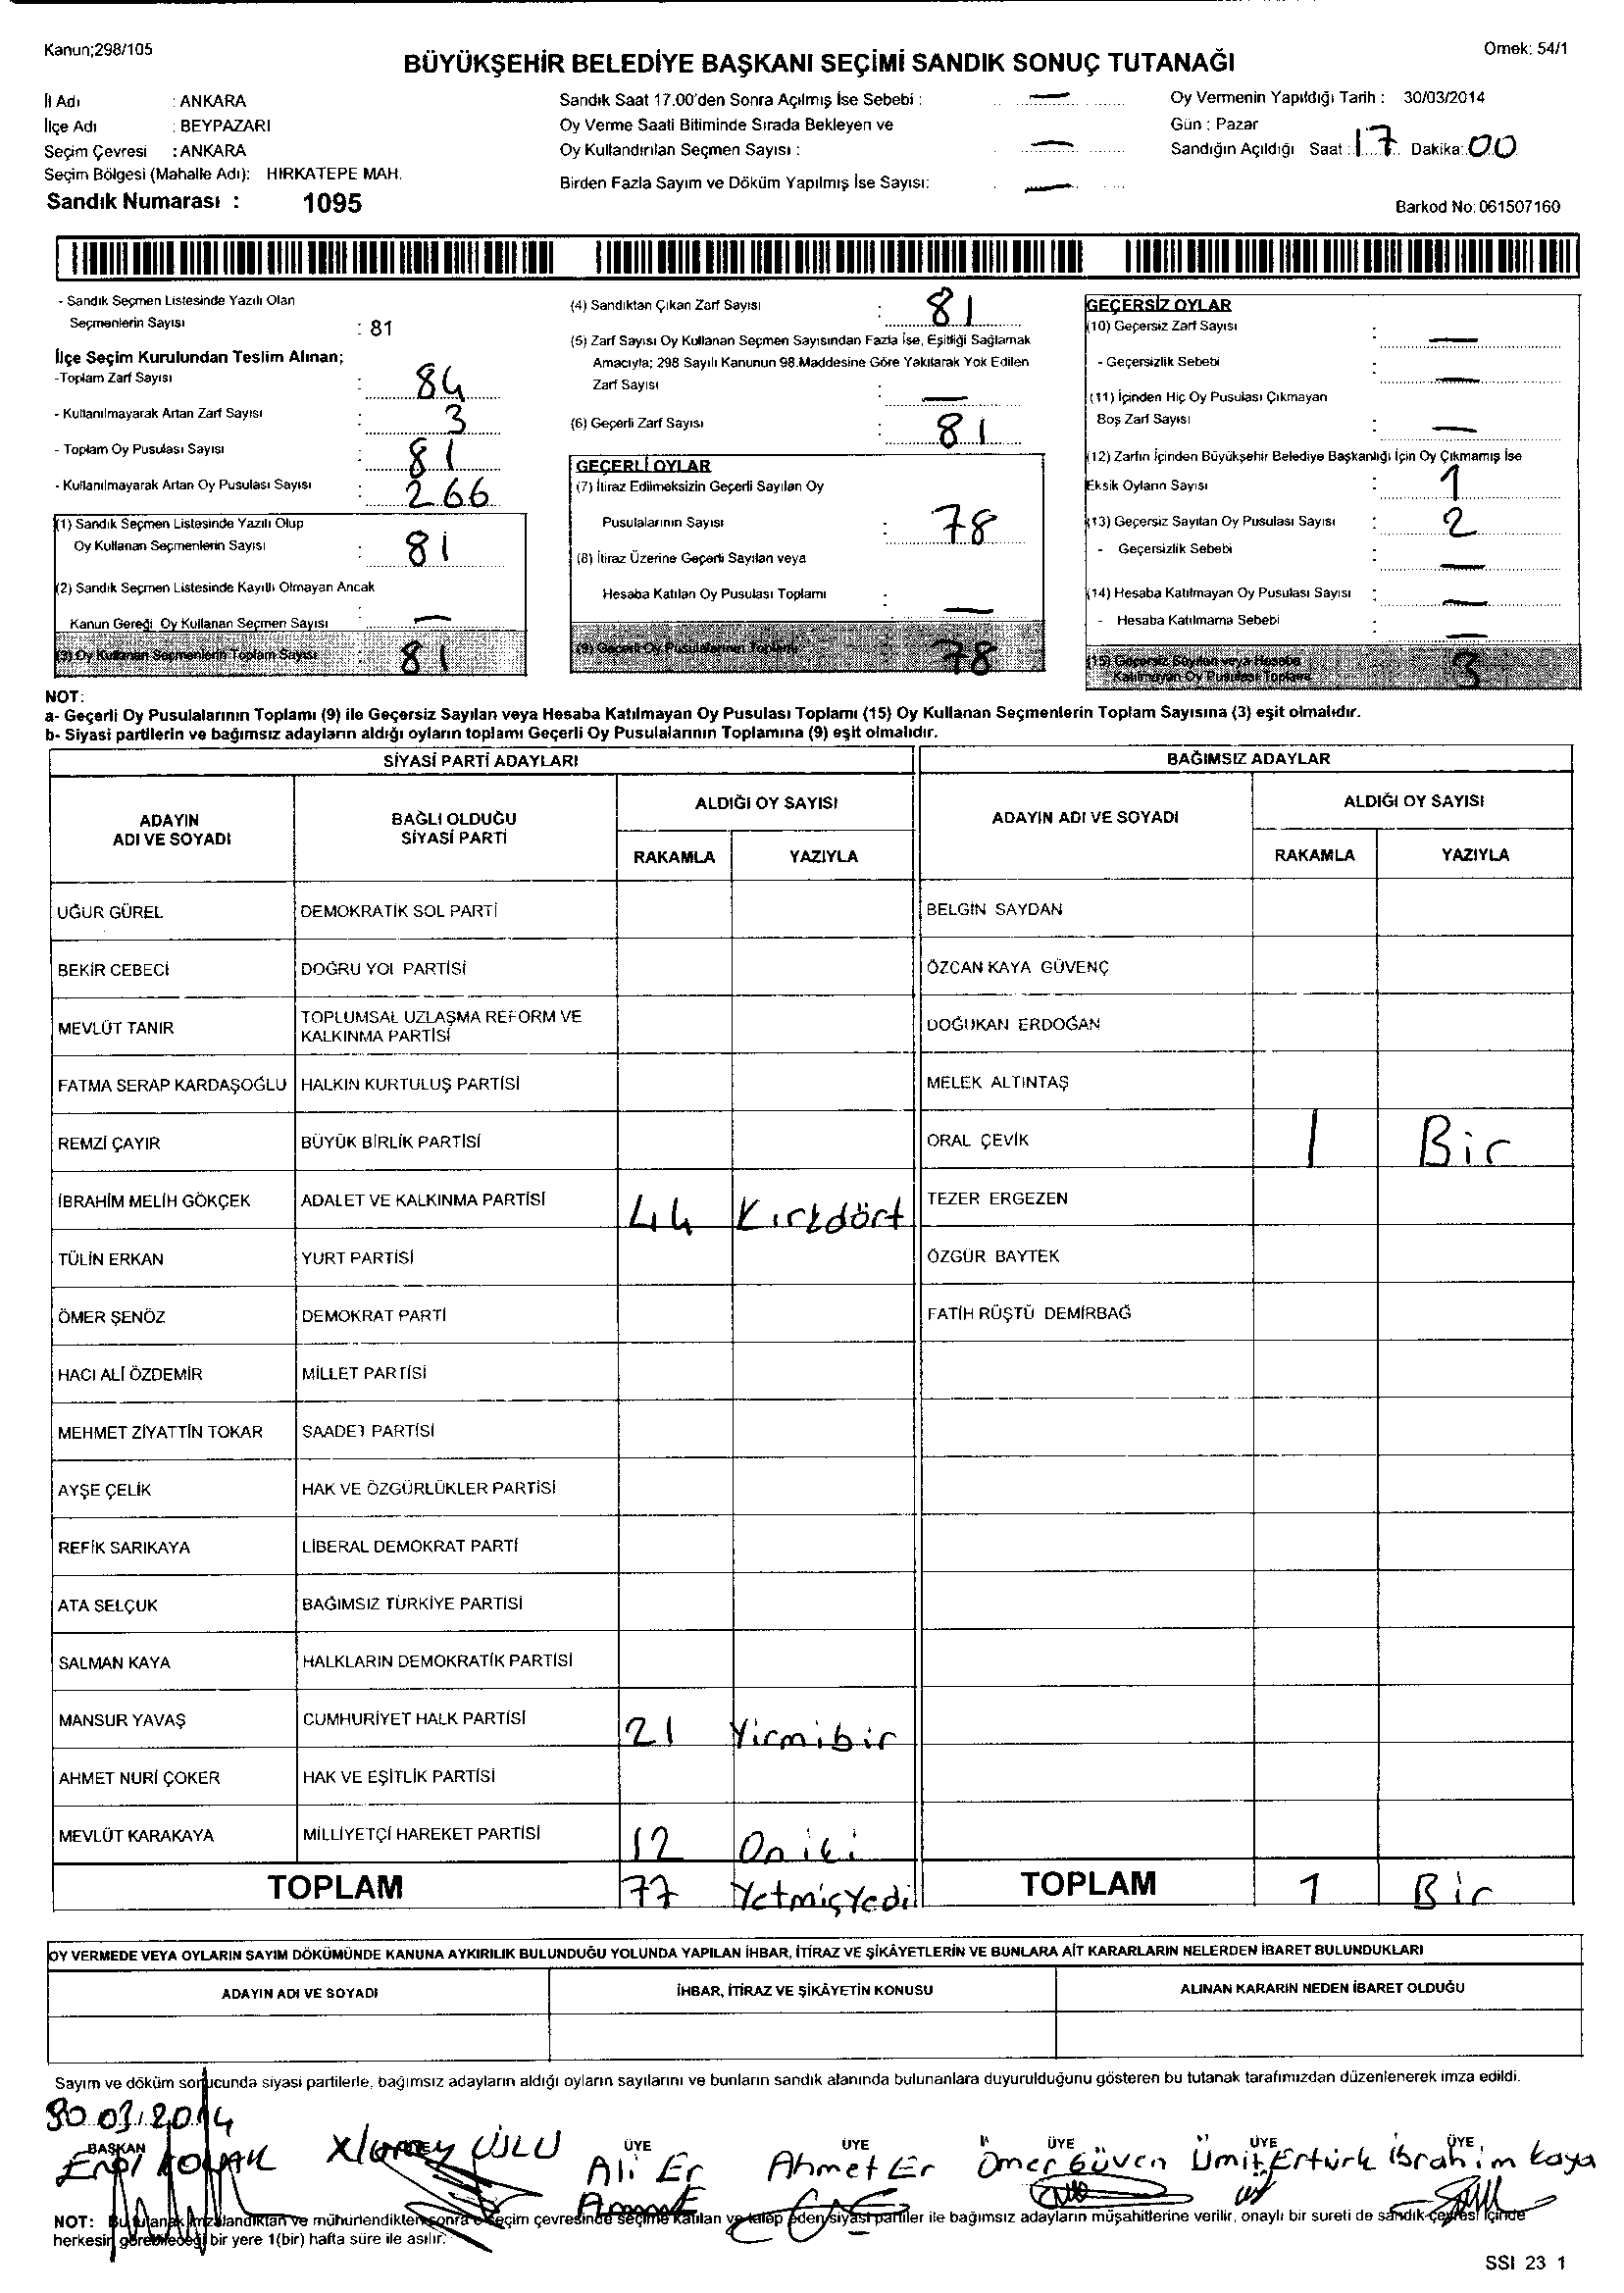 Kanun;298/105
Örnek: 54/1
BÜYÜKŞEHİR BELEDİYE BAŞKANI SEÇİMİ SANDIK SONUÇ TUTANAĞI
İl Adı : ANKARA
İlçe Adı : BEYPAZARI
Seçim Çevresi : ANKARA
Seçim Bölgesi (Mahalle Adı): HIRKATEPE MAH.
Sandık Numarası : 1095
Sandık Saat 17.00'den Sonra Açılmış İse Sebebi : —
Oy Verme Saati Bitiminde Sırada Bekleyen ve
Oy Kullandırılan Seçmen Sayısı : —
Birden Fazla Sayım ve Döküm Yapılmış İse Sayısı: —
Oy Vermenin Yapıldığı Tarih : 30/03/2014
Gün : Pazar
Sandığın Açıldığı Saat : 17 Dakika: 00
Barkod No: 061507160
- Sandık Seçmen Listesinde Yazılı Olan
Seçmenlerin Sayısı : 81
İlçe Seçim Kurulundan Teslim Alınan;
-Toplam Zarf Sayısı : 84
- Kullanılmayarak Artan Zarf Sayısı : 3
- Toplam Oy Pusulası Sayısı : 81
- Kullanılmayarak Artan Oy Pusulası Sayısı : 266
(1) Sandık Seçmen Listesinde Yazılı Olup
Oy Kullanan Seçmenlerin Sayısı : 81
(2) Sandık Seçmen Listesinde Kayıtlı Olmayan Ancak
Kanun Gereği Oy Kullanan Seçmen Sayısı : —
(3) Oy Kullanan Seçmenlerin Toplam Sayısı : 81
(4) Sandıktan Çıkan Zarf Sayısı : 81
(5) Zarf Sayısı Oy Kullanan Seçmen Sayısından Fazla İse, Eşitliği Sağlamak
Amacıyla; 298 Sayılı Kanunun 98.Maddesine Göre Yakılarak Yok Edilen
Zarf Sayısı : —
(6) Geçerli Zarf Sayısı : 81
GEÇERLİ OYLAR
(7) İtiraz Edilmeksizin Geçerli Sayılan Oy
Pusulalarının Sayısı : 78
(8) İtiraz Üzerine Geçerli Sayılan veya
Hesaba Katılan Oy Pusulası Toplamı : —
(9) Geçerli Oy Pusulalarının Toplamı : 78
GEÇERSİZ OYLAR
(10) Geçersiz Zarf Sayısı : —
- Geçersizlik Sebebi : —
(11) İçinden Hiç Oy Pusulası Çıkmayan
Boş Zarf Sayısı : —
(12) Zarfın İçinden Büyükşehir Belediye Başkanlığı İçin Oy Çıkmamış İse
Eksik Oyların Sayısı : 1
(13) Geçersiz Sayılan Oy Pusulası Sayısı : 2
- Geçersizlik Sebebi : —
(14) Hesaba Katılmayan Oy Pusulası Sayısı : —
- Hesaba Katılmama Sebebi : —
(15) Geçersiz Sayılan veya Hesaba
Katılmayan Oy Pusulası Toplamı 3
NOT:
a- Geçerli Oy Pusulalarının Toplamı (9) ile Geçersiz Sayılan veya Hesaba Katılmayan Oy Pusulası Toplamı (15) Oy Kullanan Seçmenlerin Toplam Sayısına (3) eşit olmalıdır.
b- Siyasi partilerin ve bağımsız adayların aldığı oyların toplamı Geçerli Oy Pusulalarının Toplamına (9) eşit olmalıdır.
SİYASİ PARTİ ADAYLARI
ADAYIN
ADI VE SOYADI
BAĞLI OLDUĞU
SİYASİ PARTİ
ALDIĞI OY SAYISI
RAKAMLA YAZIYLA
UĞUR GÜREL DEMOKRATİK SOL PARTİ
BEKİR CEBECİ DOĞRU YOL PARTİSİ
MEVLÜT TANIR TOPLUMSAL UZLAŞMA REFORM VE
KALKINMA PARTİSİ
FATMA SERAP KARDAŞOĞLU HALKIN KURTULUŞ PARTİSİ
REMZİ ÇAYIR BÜYÜK BİRLİK PARTİSİ
İBRAHİM MELİH GÖKÇEK ADALET VE KALKINMA PARTİSİ 44 Kırkdört
TÜLİN ERKAN YURT PARTİSİ
ÖMER ŞENÖZ DEMOKRAT PARTİ
HACI ALİ ÖZDEMİR MİLLET PARTİSİ
MEHMET ZİYATTİN TOKAR SAADET PARTİSİ
AYŞE ÇELİK HAK VE ÖZGÜRLÜKLER PARTİSİ
REFİK SARIKAYA LİBERAL DEMOKRAT PARTİ
ATA SELÇUK BAĞIMSIZ TÜRKİYE PARTİSİ
SALMAN KAYA HALKLARIN DEMOKRATİK PARTİSİ
MANSUR YAVAŞ CUMHURİYET HALK PARTİSİ 21 Yirmibir
AHMET NURİ ÇOKER HAK VE EŞİTLİK PARTİSİ
MEVLÜT KARAKAYA MİLLİYETÇİ HAREKET PARTİSİ 12 Oniki
TOPLAM 77 YetmişYedi
BAĞIMSIZ ADAYLAR
ADAYIN ADI VE SOYADI
ALDIĞI OY SAYISI
RAKAMLA YAZIYLA
BELGİN SAYDAN
ÖZCAN KAYA GÜVENÇ
DOĞUKAN ERDOĞAN
MELEK ALTINTAŞ
ORAL ÇEVİK 1 Bir
TEZER ERGEZEN
ÖZGÜR BAYTEK
FATİH RÜŞTÜ DEMİRBAĞ
TOPLAM 1 Bir
OY VERMEDE VEYA OYLARIN SAYIM DÖKÜMÜNDE KANUNA AYKIRILIK BULUNDUĞU YOLUNDA YAPILAN İHBAR, İTİRAZ VE ŞİKÂYETLERİN VE BUNLARA AİT KARARLARIN NELERDEN İBARET BULUNDUKLARI
ADAYIN ADI VE SOYADI İHBAR, İTİRAZ VE ŞİKÂYETİN KONUSU ALINAN KARARIN NEDEN İBARET OLDUĞU
Sayım ve döküm sonucunda siyasi partilerle, bağımsız adayların aldığı oyların sayılarını ve bunların sandık alanında bulunanlara duyurulduğunu gösteren bu tutanak tarafımızdan düzenlenerek imza edildi.
30.03.2014
BAŞKAN ÜYE ÜYE ÜYE ÜYE ÜYE
ÜSLÜ Ali Er Ahmet Er Ömer Güven Ümit Ertürk İbrahim Kaya
NOT: Bu tutanak imzalandıktan ve mühürlendikten sonra o seçim çevresinde seçime katılan ve talep eden siyasi partiler ile bağımsız adayların müşahitlerine verilir, onaylı bir sureti de sandık çevresi içinde
herkesin görebileceği bir yere 1(bir) hafta süre ile asılır.
SSI 23 1